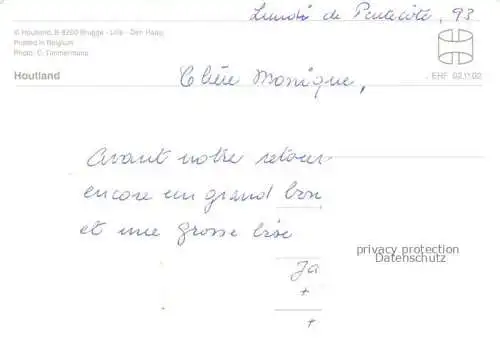 Lundi de Pentecôte, 93
© Houtland, B-8200 Brugge - Lille - Den Haag
Printed in Belgium
Photo: C. Timmermans
Houtland
EHF 02.11.02
Chère Monique,
Avant notre retour
encore un grand
et une grosse
privacy protection
Datenschutz
Ja
+
+